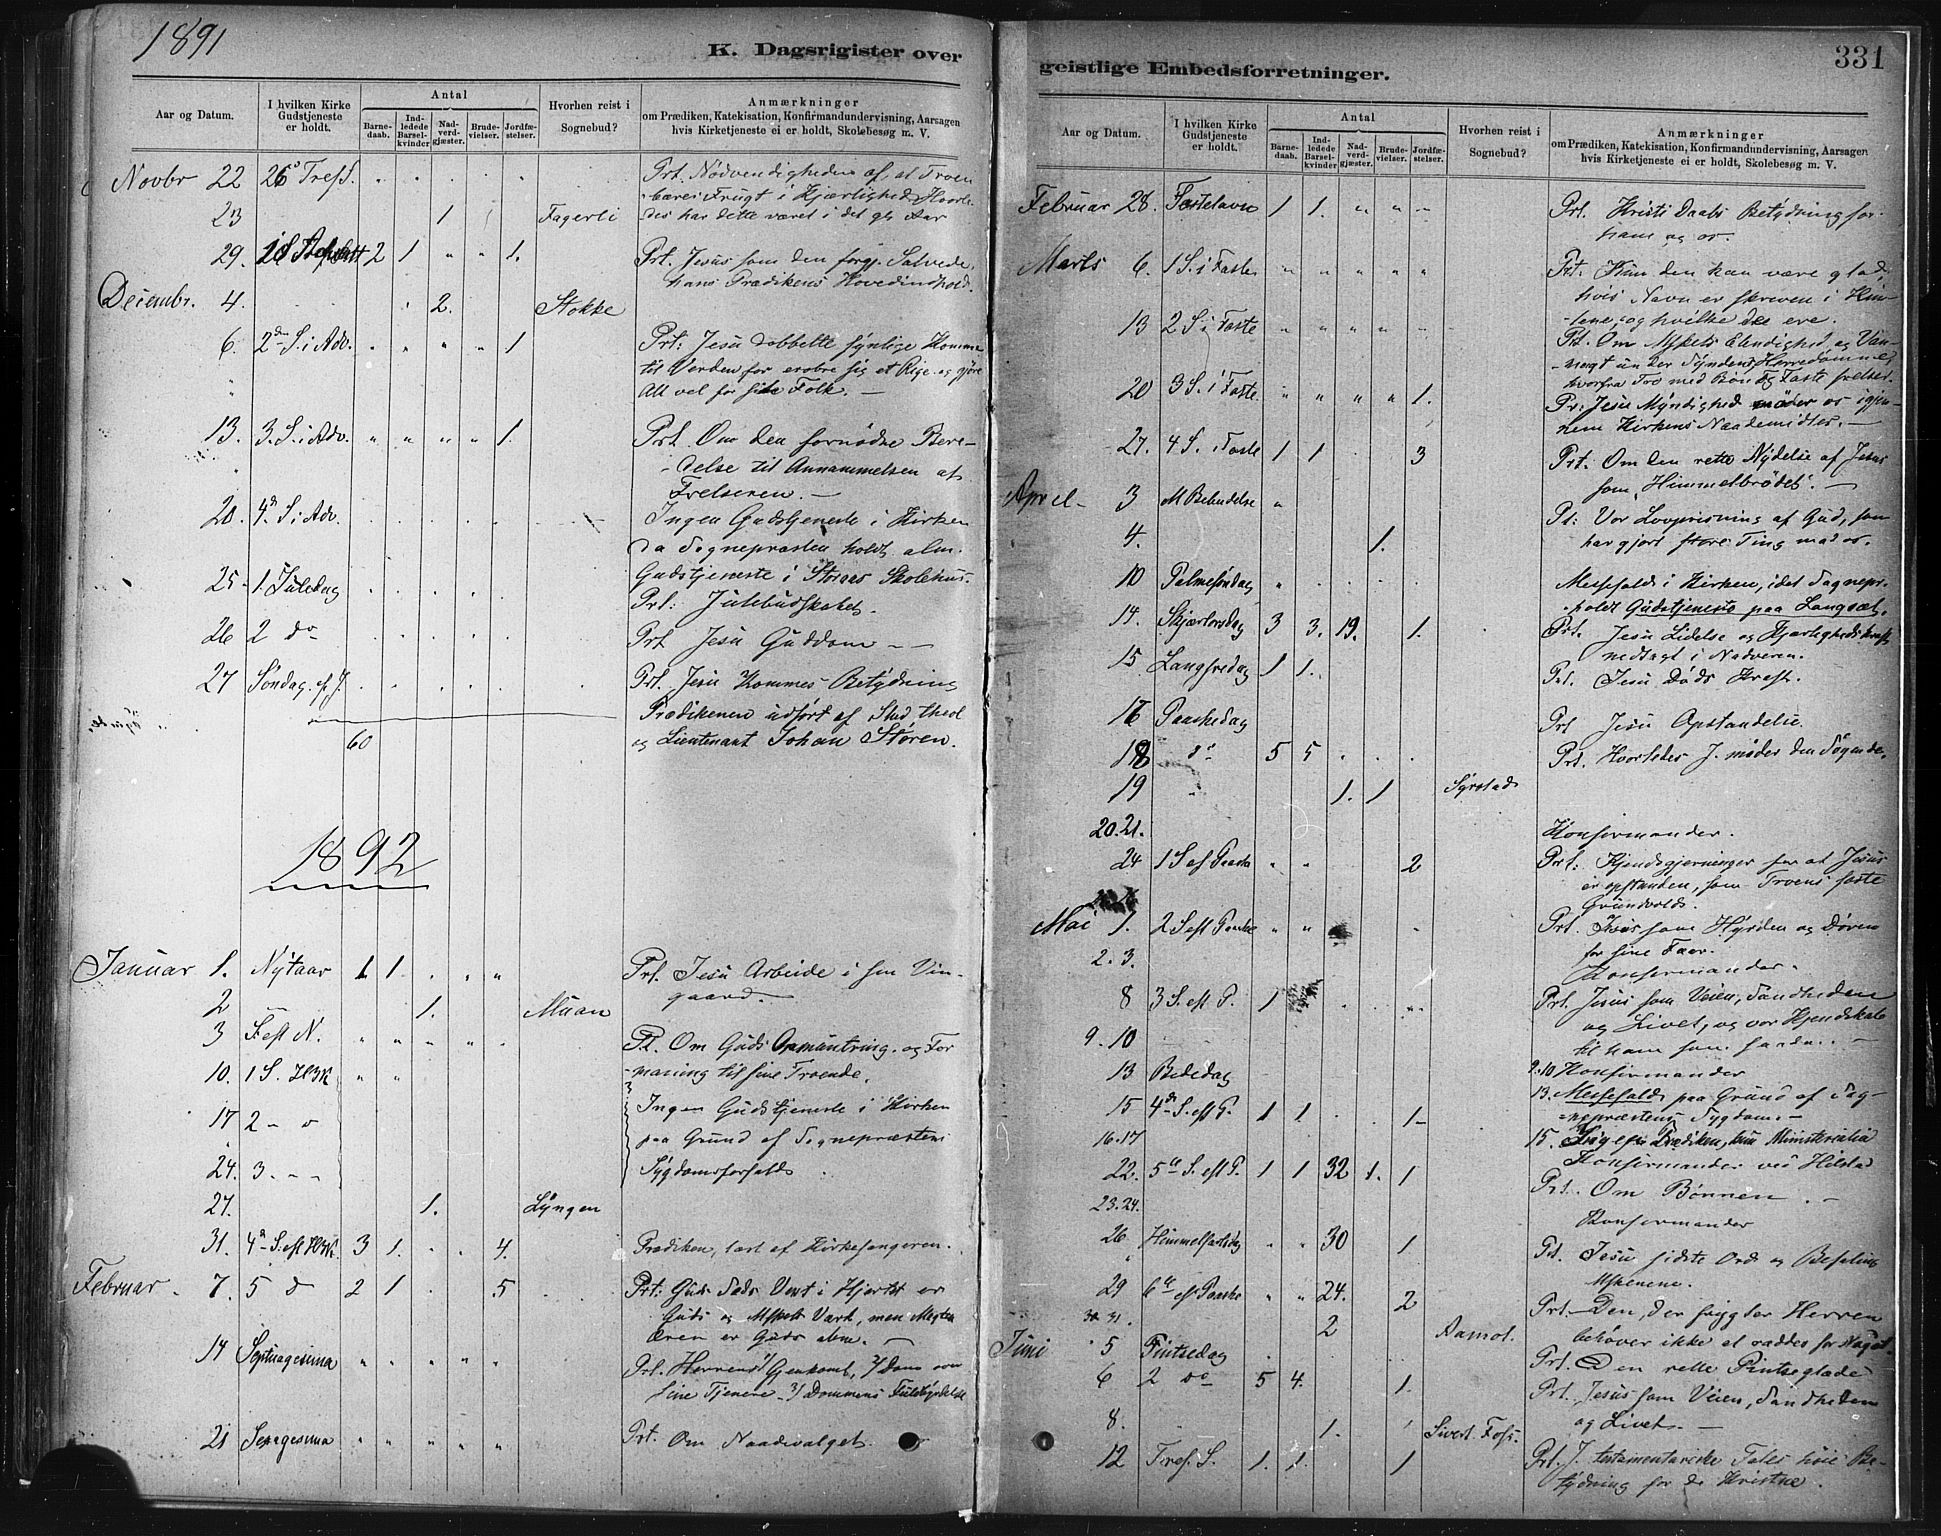 1891
K. Dagsrigister over
Aar og Datum.
I hvilken Kirke Gudstjeneste er holdt.
Antal
Barnedaab.
Indledede Barselkvinder
Nadverdgjæster.
Brudevielser.
Jordfæstelser.
Hvorhen reist i Sognebud?
Anmærkninger
om Prædiken, Katekisation, Konfirmandundervisning, Aarsagen
hvis Kirketjeneste ei er holdt, Skolebesøg m. V.
Novbr 22 26 S Tref. Prt. Nødvendigheden af, at Troen
bærer Frugt i Kjærlighed. Hvorle-
23 1 Fagerli des har dette været i det gl. Aar
29. 2 1 " " 1. Prt. Jesus som den forgj. Salvede,
hans Prædikens Hovedindhold.
Decembr. 4. 2. Stokke
6. 2den S. i Adv. " " " " 1 Prt: Jesu dobbelte synlige Komme
til Verden for erobre sig et Rige og gjøre
Alt vel for sit Folk. —
13. 3. S. i Adv. " " " " 1. Prt. Om den fornødne Bere-
delse til Annammelsen af
Frelseren. —
20. 4d S i Adv. Ingen Gudstjeneste i Kirken
da Sognepræsten holdt alm.
Gudstjeneste i Storaas Skolehus.
25. 1. Juledag Prt: Julebudskabet.
26 2 do Prt Jesu Guddom — —
27 Søndag. ef J. Prt. Jesu Kommes Betydning
Prædikenen udført af Stud. theol
60 og Lieutenant Johan Støren.
1892
Januar 1. Nytaar 1 1. " " Prt. Jesu Arbeide i sin Vin-
gaard. —
2 1. Muan
3 S. eft N. " " " " " Pt. Om Guds Opmuntring og For
maning til sine Troende.
10. 1 S. H3K " "
17 2 — o Ingen Gudstjeneste i Kirken
paa Grund af Sognepræstens
24. 3 — — Sygdomsforfald
27. 1. Lyngen
31. 4d S. eft H3K. 3 1. 4. Prædiken, læst af Kirkesangeren.
Februar. 7. 5 d 2 1 5 Prt: Guds Sæds Vext i Hjertet er
Guds og Mskets Værk, men Mesten
Æren er Guds alene. —
14 Septuagesima " " " " " Prt. Herrens 1/ Gjenkomst, 2/ Dom over
sine Tjenere 3/ Dommens Fuldbyrdelse
21 Sexagesima " " " " " Prt. Om Naadevalget.
geistlige Embedsforretninger.
331
Aar og Datum.
I hvilken Kirke Gudstjeneste er holdt.
Antal
Barnedaab.
Indledede Barselkvinder
Nadverdgjæster.
Brudevielser.
Jordfæstelser.
Hvorhen reist i Sognebud?
Anmærkninger
om Prædiken, Katekisation, Konfirmandundervisning, Aarsagen
hvis Kirketjeneste ei er holdt, Skolebesøg m. V.
Februar 28. Fastelavn 1 1. " " " Prt. Kristi Daabs Betydning for
ham og os.
Marts 6. 1 S. i Faste " " " " " Prt. Kun den kan være glad,
hvis Navn er skreven i Him-
lene, og hvilke de ere.
13 2 S i Faste " " " " Pt. Om Mskets Elendighed og Van-
magt under Syndens Herredømme,
hvorfra Tro med Bøn og Faste frelser.
20 3 S. i Faste " " " " 1. Pr: Jesu Myndighed møder os igjen-
nem Kirkens Naademidler. —
27. 4 S. i Faste 1 1 3 Prt. Om den rette Nydelse af Jesus
som "Himmelbrødet". —
Aprel. 3 M Bebudelse " Pt: Vor Lovprisning af Gud, som
har gjort store Ting mod os.
4. 1.
10 Palmesøndag " Messefald i Kirken, idet Sognepr.
holdt Gudstjeneste paa Langsæt.
14. Skjærtorsdag 3 3. 19. 1. Prt. Jesu Lidelse og Kjærlighedskraft
nedlagt i Nadveren.
15 Langfredag 1 1. Prt. Jesu Døds Kraft.
17 Paaskedag Prt Jesu Opstandelse.
18 do 5 5 Prt. Hvorledes J. møder den Søgende.
19 " 1. 1 Syrstad
20. 21. Konfirmander.
24 1 S ef Paaske " " 2 Prt: Kjendsgjerninger for at Jesus
er opstanden, som Troens faste
Grundvold.
Mai 1. 2 S eft Paaske " " Prt. Jesus som Hyrden og Døren
for sine Faar.
2. 3. Konfirmander.
8 3 S. eft P. 1 Prt. Jesus som Veien, Sandheden
og Livet, og vor Kjendskab
til ham som saadan. —
9. 10 9.10 Konfirmander
13 Bededag 13. Messefald paa Grund af Sog-
nepræstens Sygdom —
15 4de S. eft P. 1 1. 1 15. Ingen Prædiken, kun Ministerialia
16.17 Konfirmander ved Hilstad
22. 5te S. eft P. 1 1 32 1. 1 Prt. Om Bønnen. —
23.24. Konfirmander
26 Himmelfartsdag " " 30 1 Prt. Jesu sidste Ord og Befaling
Mskenene.
29 6te ef Paaske " " 24. 2 Prt. — Den, der frygter Herren
30 31. 2 Aamot. behøver ikke at ræddes for Noget.
Juni 5 Pintsedag Prt. Den rette Pintseglæde
6 2 do 5 4. 1. Prt. Jesus som Veien, Sandheden
og Livet. —
8. 1. Sivert Foss.
12 Tref. S. 1. 1. 1 Prt. J. testamentariske Tales høie Be-
tydning for de Kristne.